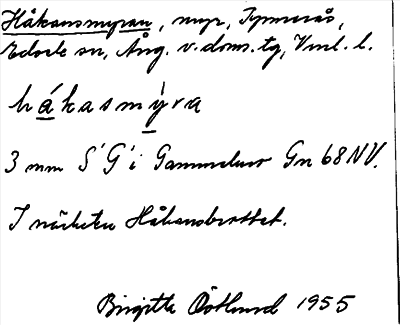 Håkansmyran, myr, Tynnerås,
Edsele sn, Ång. v. doms. tg, Vml. l.
hákasmýra
3 mm S´G´i Gammelmo Gn 68 NV.
I närheten Håkansbrottet.
Birgitta Östlund 1955